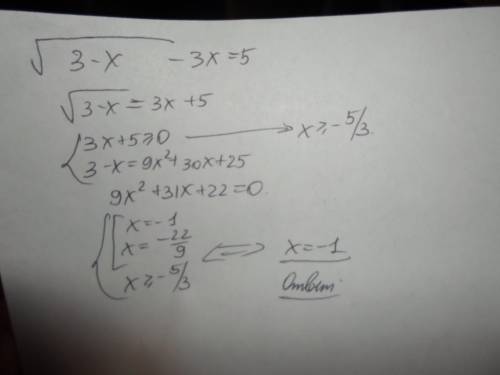 √(3-x) - 3x = 5
√(3-x) = 3x + 5
{ 3x + 5 ≥ 0 → x ≥ -5/3
3 - x = 9x² + 30x + 25
9x² + 31x + 22 = 0
{ [ x = -1
x = -22/9 ⇔ x = -1
x ≥ -5/3 Ответ